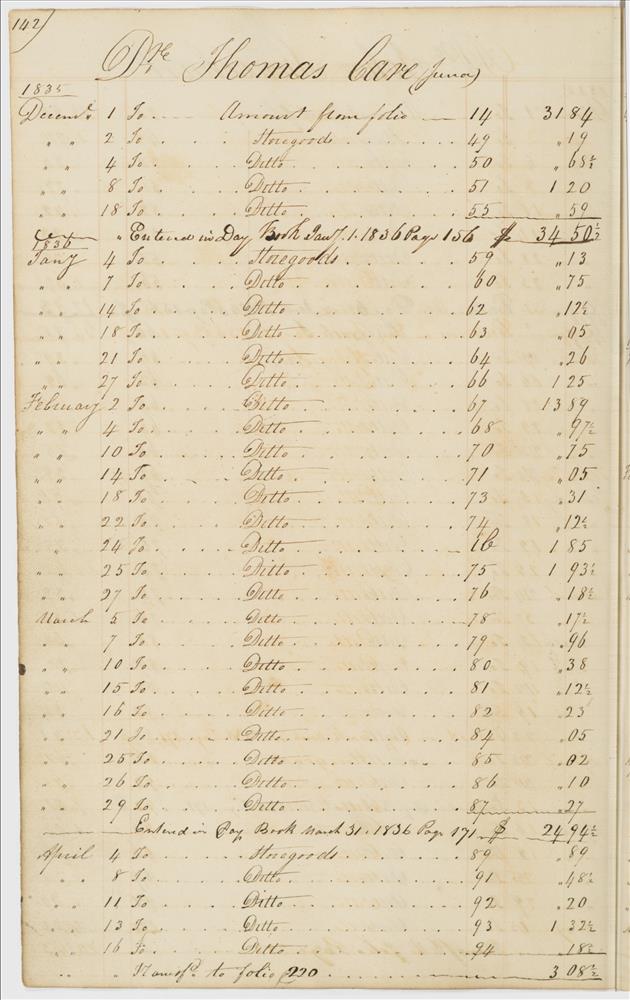 142
Dr Thomas Care (Junor)
1835
Decemb. 1 To Amount from folio 14 31 84
" " 2 To Storegoods 49 " 19
" " 4 To Ditto 50 " 68½
" " 8 To Ditto 51 1 20
" " 18 To Ditto 55 " 59
" Entered in Day Book Jany. 1. 1836 Page 156 $ 34 50½
1836
Jany 4 To Storegoods 59 " 13
" " 7 To Ditto 60 " 75
" " 14 To Ditto 62 " 12½
" " 18 To Ditto 63 " 05
" " 21 To Ditto 64 " 26
" " 27 To Ditto 66 1 25
February 2 To Ditto 67 13 89
" " 4 To Ditto 68 " 97½
" " 10 To Ditto 70 " 75
" " 14 To Ditto 71 " 05
" " 18 To Ditto 73 " 31
" " 22 To Ditto 74 " 12½
" " 24 To Ditto Ib 1 85
" " 25 To Ditto 75 1 93½
" " 27 To Ditto 76 " 18½
March 5 To Ditto 78 " 17½
" " 7 To Ditto 79 " 96
" " 10 To Ditto 80 " 38
" " 15 To Ditto 81 " 12½
" " 16 To Ditto 82 " 23
" " 21 To Ditto 84 " 05
" " 25 To Ditto 85 " 02
" " 26 To Ditto 86 " 10
" " 29 To Ditto 87 " 27
Entered in Day Book March 31. 1836 Page 171 $ 24 94½
April 4 To Storegoods 89 " 89
" " 8 To Ditto 91 " 48½
" " 11 To Ditto 92 " 20
" " 13 To Ditto 93 1 32½
" " 16 To Ditto 94 " 18½
" " " to folio 220 3 08½